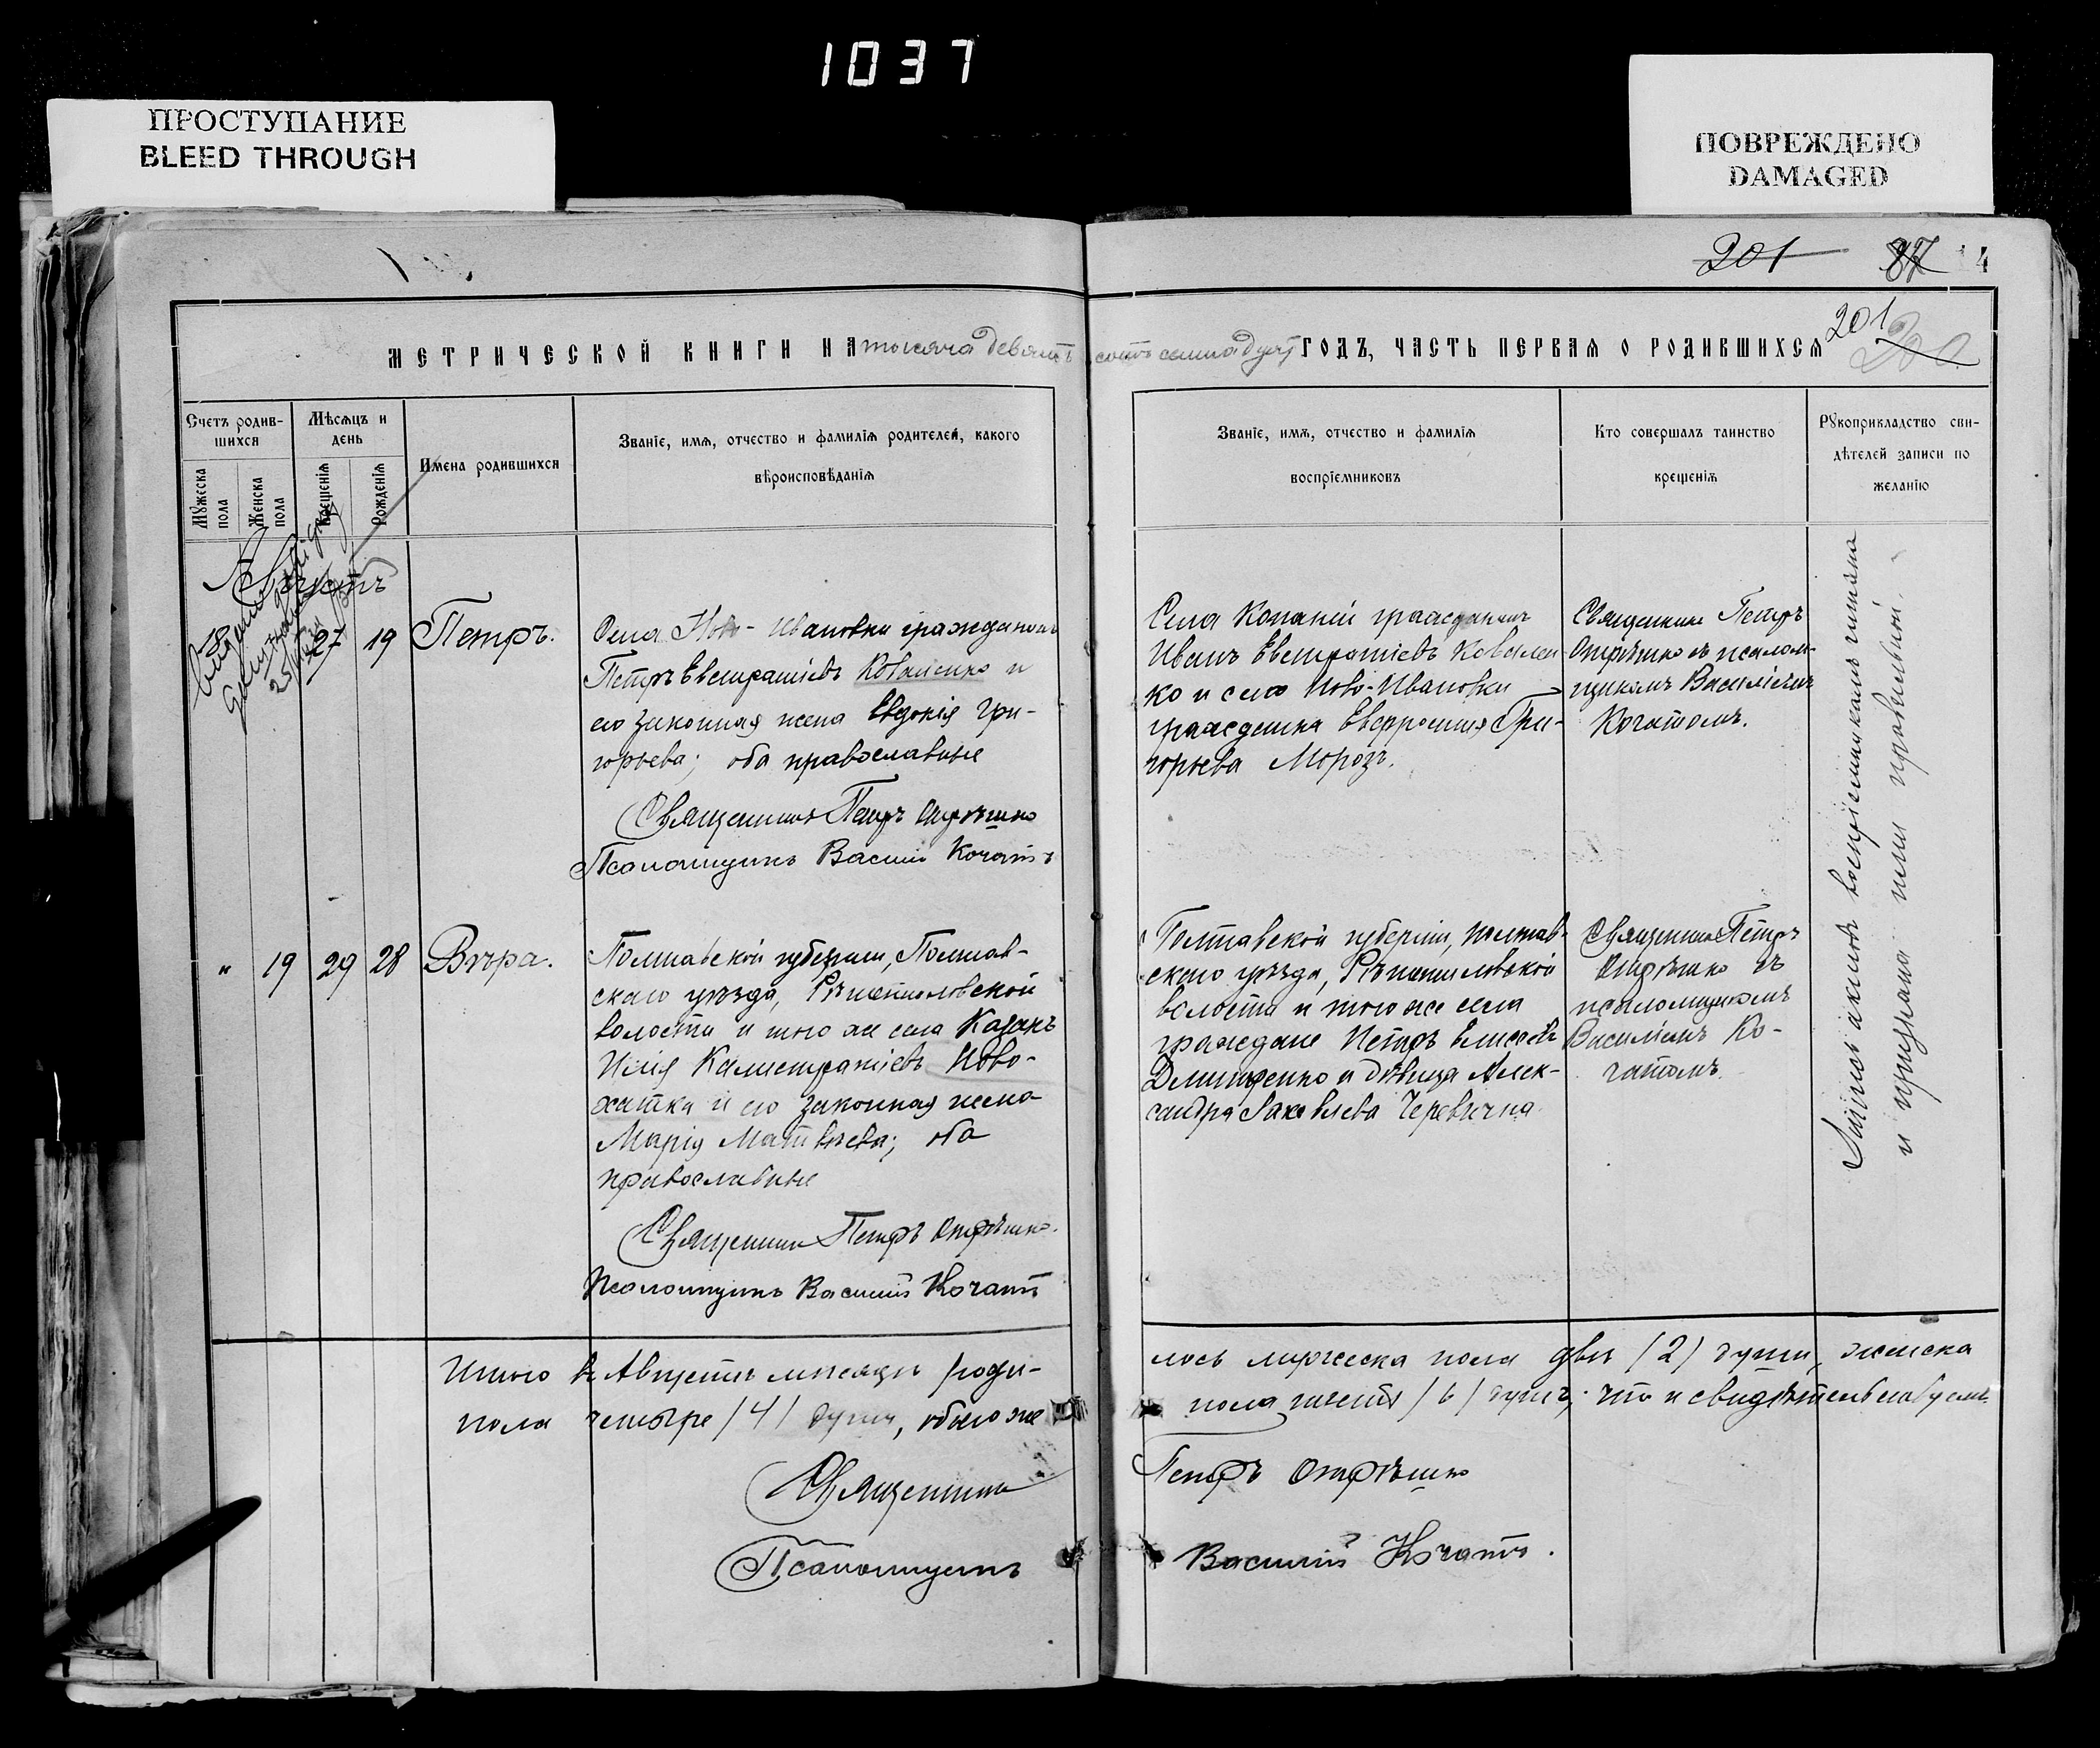 1037
ПРОСТУПАНИЕ
BLEED THROUGH
ПОВРЕЖДЕНО
DAMAGED
201 87 4
МЕТРИЧЕСКОЙ КНИГИ НА тысяча девять сотъ семнадцат ГОДЪ, ЧАСТЬ ПЕРВАЯ О РОДИВШИХСЯ
201
Счетъ родив-
шихся
Мѣсяцъ и
день
Мужеска
пола
Женска
пола
Крещенія
Рожденія
Имена родившихся
Званіе, имя, отчество и фамилія родителей, какого
вѣроисповѣданія
Званіе, имя, отчество и фамилія
воспріемниковъ
Кто совершалъ таинство
крещенія
Рукоприкладство сви-
дѣтелей записи по
желанію
Августъ
18 27 19 Петръ.
Села Ново-Ивановки гражданинъ
Петръ Евстратіевъ Коваленко и
его законная жена Евдокія Гри-
горьева; оба православные
Священникъ Петръ Отрѣшко
Псаломщикъ Василій Кочатъ
Села Копаній гражданинъ
Иванъ Евстратіевъ Ковален-
ко и села Ново-Ивановки
гражданка Евфросинія Гри-
горьева Морозъ.
Священникъ Петръ
Отрѣшко съ псалом-
щикомъ Василіемъ
Кочатомъ.
" 19 29 28 Вѣра.
Полтавской губерніи, Полтав-
скаго уѣзда, Рѣшетиловской
волости и того же села Казакъ
Илія Калистратіевъ Ново-
хатка и его законная жена
Марія Матвѣева; оба
православные
Священникъ Петръ Отрѣшко.
Псаломщикъ Василій Кочатъ
Полтавской губерніи, Полтав-
скаго уѣзда, Рѣшетиловской
волости и того же села
граждане Петръ Елисѣевъ
и дѣвица Алек-
сандра Яковлева Черевична
Священникъ Петръ
Отрѣшко съ
псаломщикомъ
Василіемъ Ко-
чатомъ
воспріемникамъ читана
и признана ими правильной.
Итого въ Августѣ мѣсяцѣ роди-
лось мужеска пола двѣ (2) души, женска
пола четыре (4) души, обоего же
пола шесть (6) душъ; что и свидѣтельствуемъ
Священникъ Петръ Отрѣшко
Псаломщикъ Василій Кочатъ.